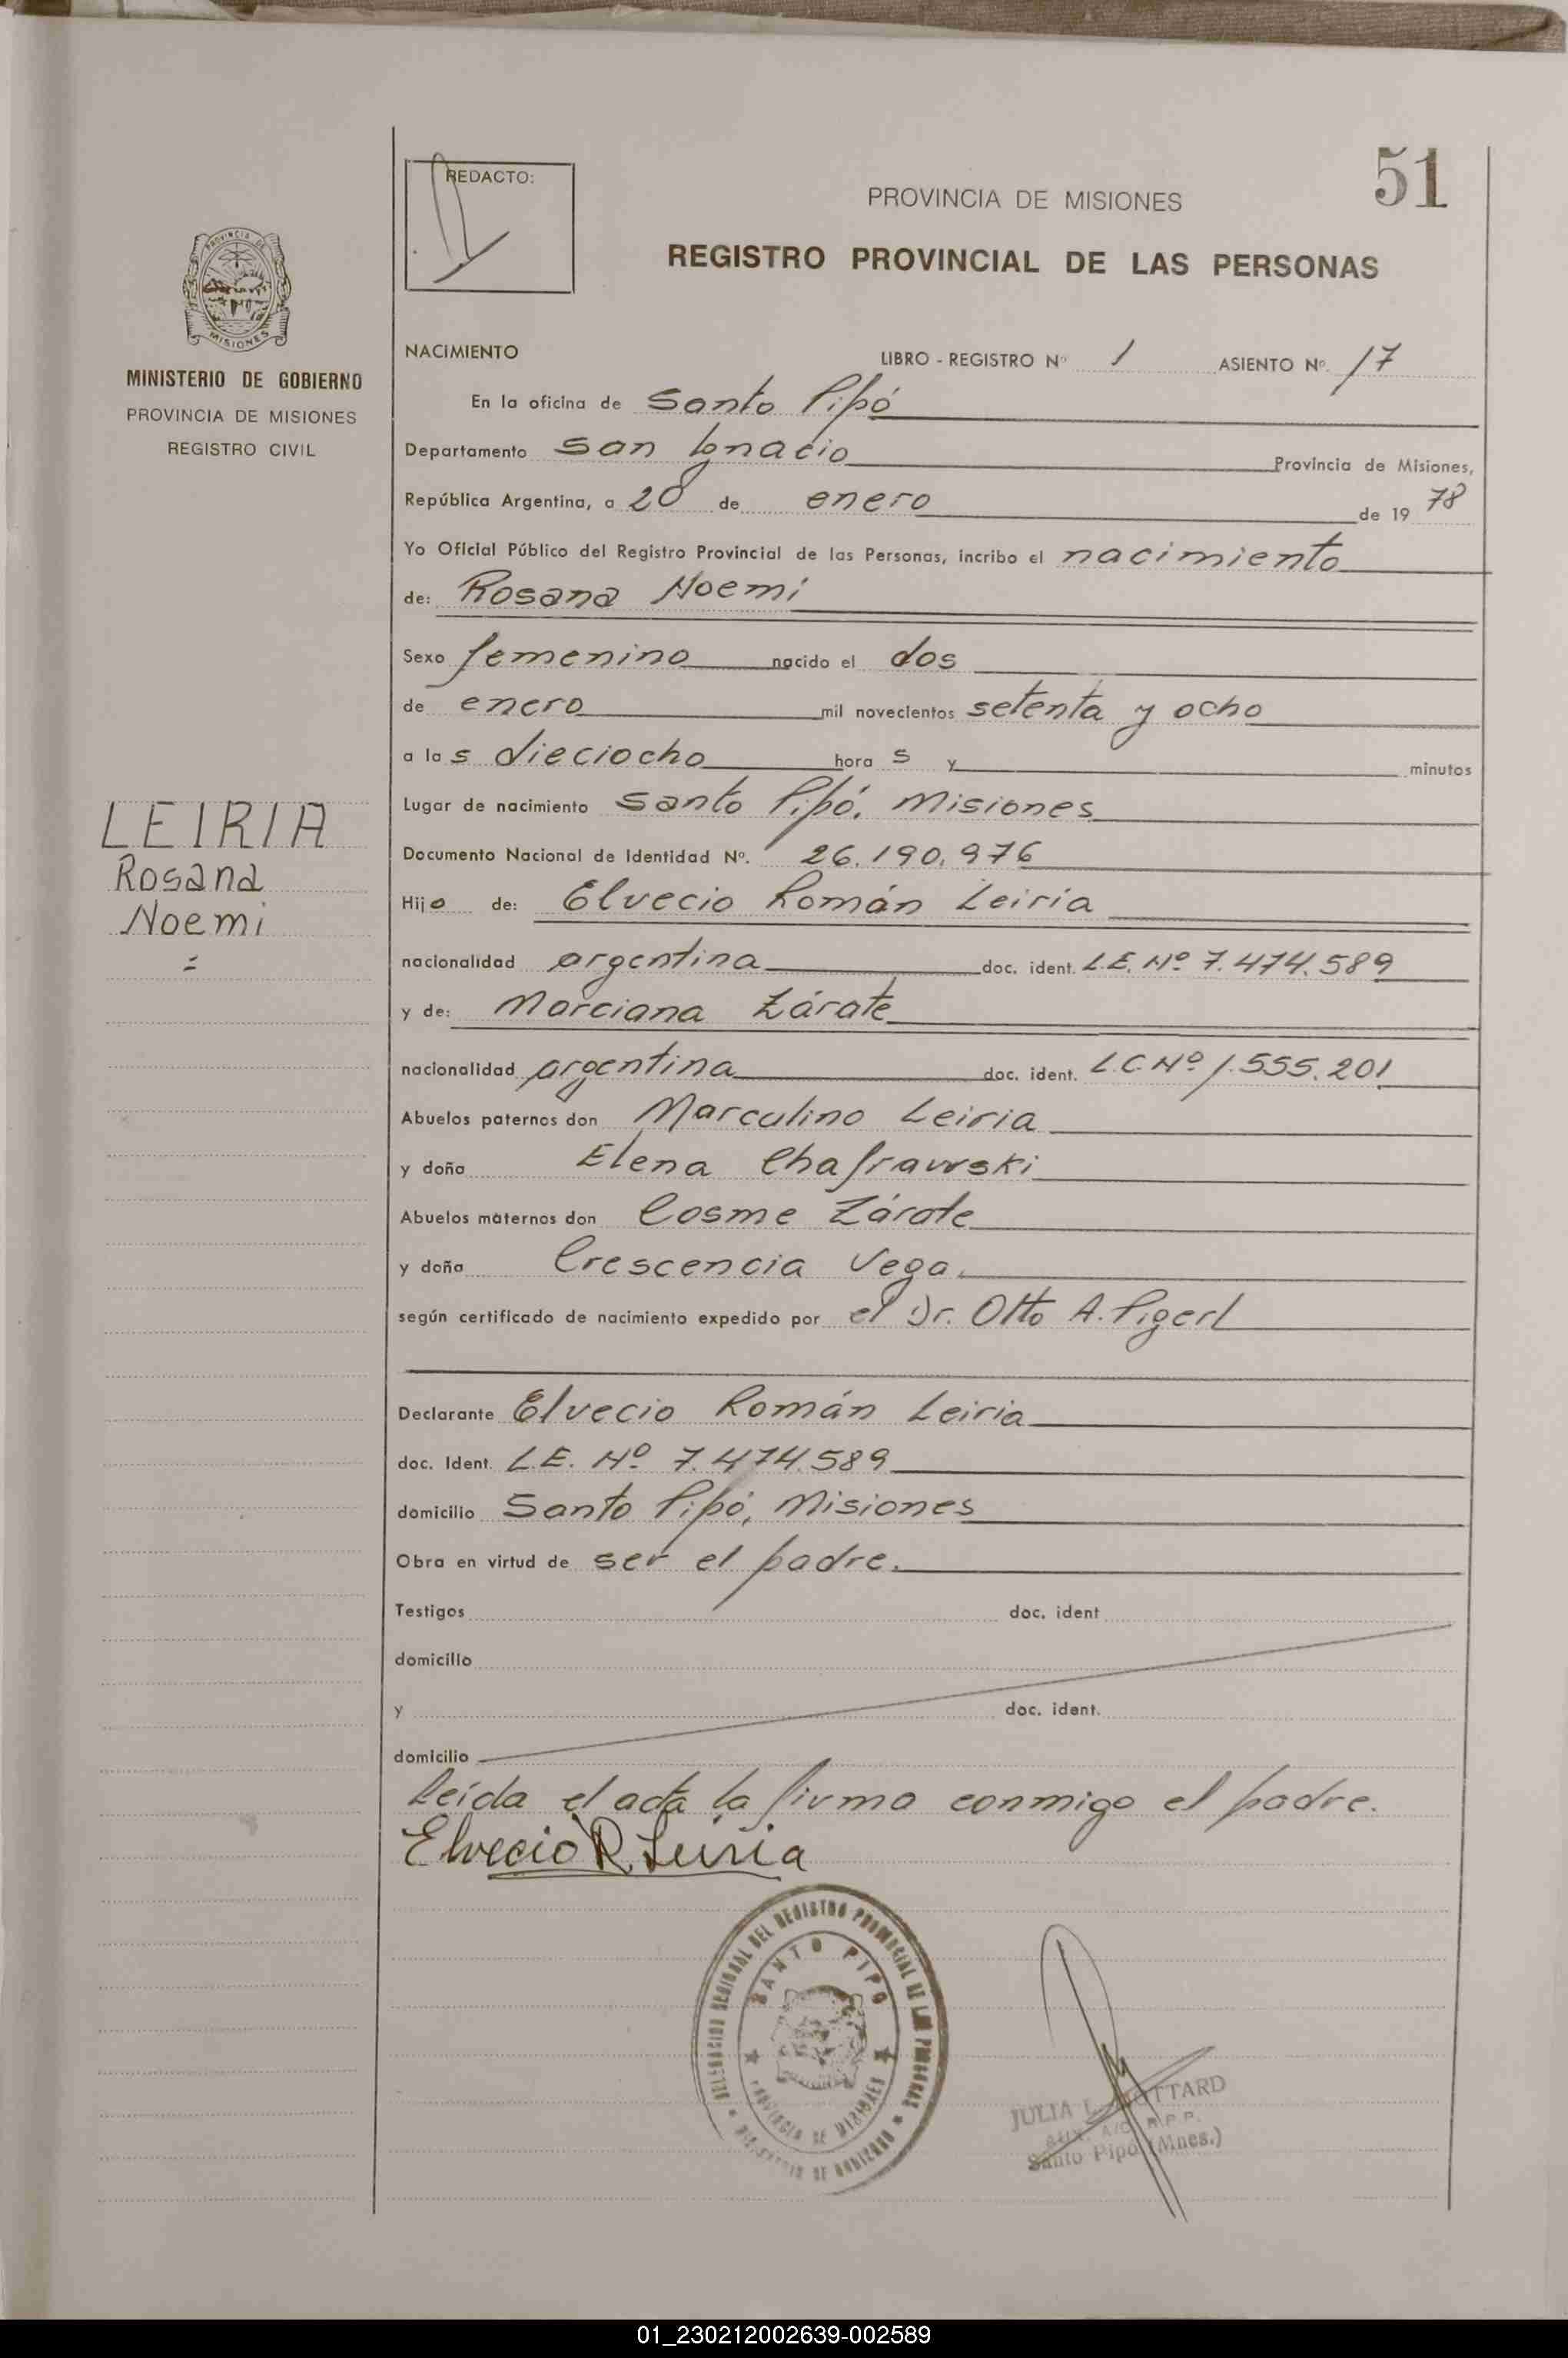 51
REDACTO:
PROVINCIA DE MISIONES
REGISTRO PROVINCIAL DE LAS PERSONAS
PROVINCIA DE
MISIONES
MINISTERIO DE GOBIERNO
PROVINCIA DE MISIONES
REGISTRO CIVIL
LEIRIA
Rosana
Noemi
=
NACIMIENTO LIBRO - REGISTRO Nº 1 ASIENTO Nº. 17
En la oficina de Santo Pipó
Departamento San Ignacio Provincia de Misiones,
República Argentina, a 20 de enero de 19 78
Yo Oficial Público del Registro Provincial de las Personas, incribo el nacimiento
de: Rosana Noemí
Sexo femenino nacido el dos
de enero mil novecientos setenta y ocho
a las dieciocho hora s y minutos
Lugar de nacimiento Santo Pipó. Misiones
Documento Nacional de Identidad Nº. 26.190.976
Hijo de: Elvecio Román Leiria
nacionalidad argentina doc. ident. L.E. Nº 7.474.589
y de: Marciana Zárate
nacionalidad argentina doc. ident. L.C. Nº 1.555.201
Abuelos paternos don Marculino Leiria
y doña Elena
Abuelos maternos don Cosme Zárate
y doña Crescencia Vega.
según certificado de nacimiento expedido por el Dr. Otto A. Pigerl
Declarante Elvecio Román Leiria
doc. Ident. L.E. Nº 7.474.589
domicilio Santo Pipó, Misiones
Obra en virtud de ser el padre.
Testigos doc. ident
domicilio
y doc. ident.
domicilio
leída el acta la firma conmigo el padre.
Elvecio R. Leiria
DELEGACION REGIONAL DEL REGISTRO PROVINCIAL DE LAS PERSONAS
SANTO PIPO
PROVINCIA DE MISIONES
MINISTERIO DE GOBIERNO
JULIA
AUX. A/C. R.P.P.
Santo Pipó (Mnes.)
01_230212002639-002589